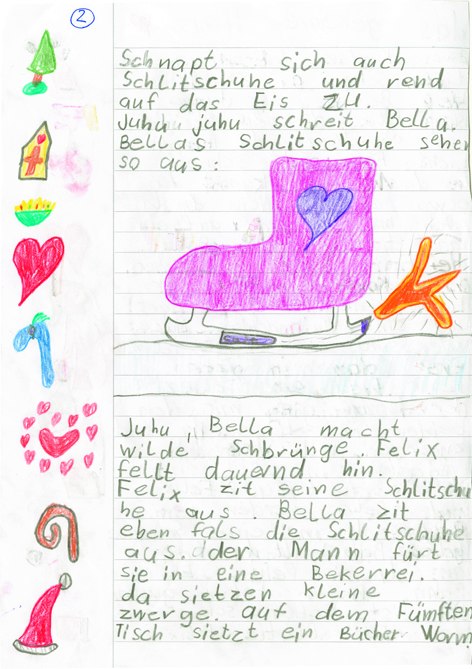 2
Schnapt sich auch
Schlitschuhe und rend
auf das Eis zu.
Juhu juhu schreit Bella.
Bellas Schlitschuhe sehen
so aus:
Juhu, Bella macht
wilde Schbrünge. Felix
fellt dauernd hin.
Felix zit seine Schlitschu
he aus. Bella zit
eben fals die Schlitschuhe
aus. der Mann fürt
sie in eine Bekerrei.
da sietzen kleine
zwerge. auf dem Fümften
Tisch sietzt ein Bücher Worm